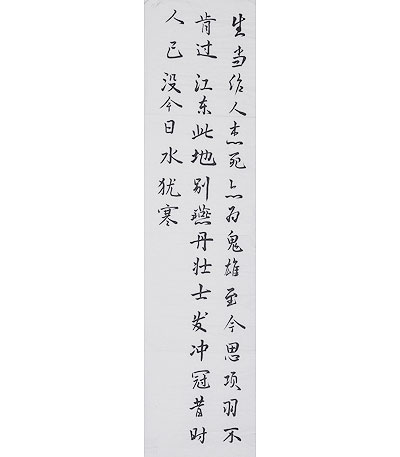 生当作人杰死亦为鬼雄至今思项羽不
肯过江东此地别燕丹壮士发冲冠昔时
人已没今日水犹寒